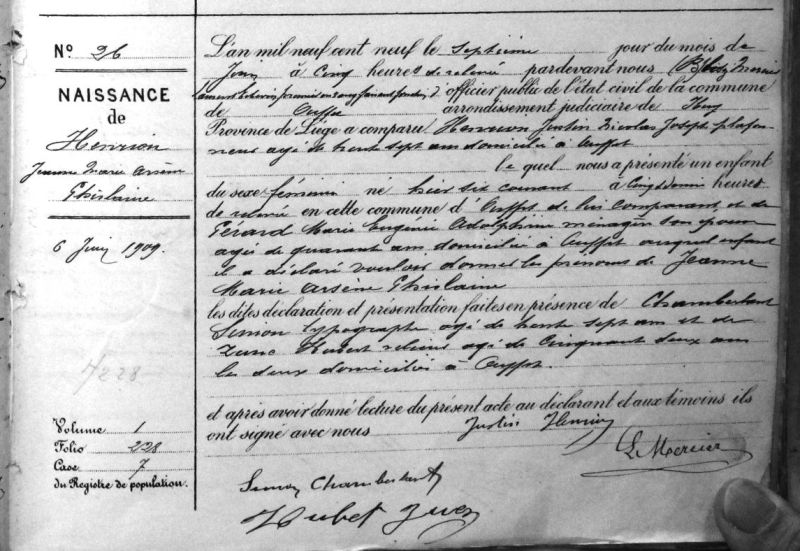 N° 26
NAISSANCE
de
Henrion
Jeanne Marie Arsène
Ghislaine
6 Juin 1909.
4228
Volume 1
Folio 228
Case 7
du Registre de population.
L'an mil neuf cent neuf le septième jour du mois de
Juin à cinq heures de relevée pardevant nous Mercier
officier public de l'état civil de la commune
de Ouffet arrondissement judiciaire de Huy
Province de Liège a comparu Henrion Justin Nicolas Joseph plafon
neur agé de trente sept ans domicilié à Ouffet
le quel nous a présenté un enfant
du sexe féminin né hier six courant à cinq et demie heures
de relevée en cette commune d'Ouffet de lui comparant et de
Gerard Marie Eugenie Adolphine menagère son épouse
agée de quarante ans domiciliée à Ouffet auquel enfant
il a déclaré vouloir donner les prénoms de Jeanne
Marie Arsène Ghislaine
les dites déclaration et présentation faites en présence de Chamberland
Simon typographe agé de trente sept ans et de
Hubert agé de cinquante deux ans
les deux domiciliés à Ouffet.
et après avoir donné lecture du présent acte au déclarant et aux témoins ils
ont signé avec nous Justin Henrion
L Mercier
Simon
Hubert